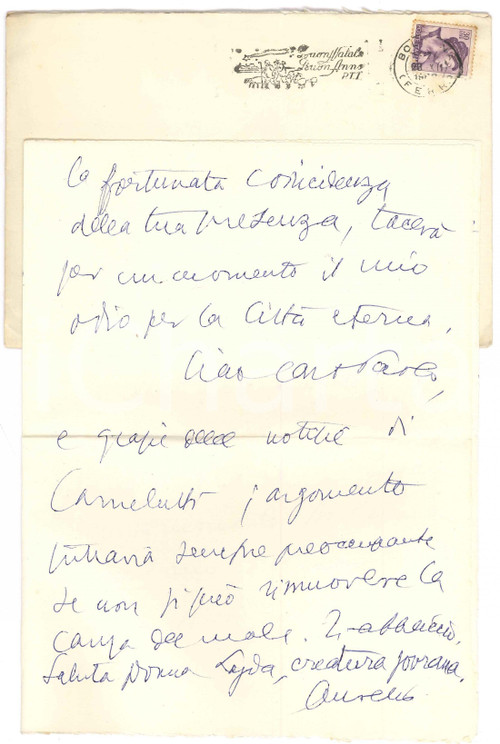 Buon Natale
Buon Anno
P.T.T.
la fortunata coincidenza
della tua presenza, tacerà
per un momento il mio
odio per la Città eterna.
Ciao caro Paolo,
e grazie delle notizie di
Carnelutti, argomento
tuttavia sempre preoccupante
se non si può rimuovere la
causa del male. Ti abbraccio,
Saluta Donna Lyda, creatura sovrana.
Aurelio